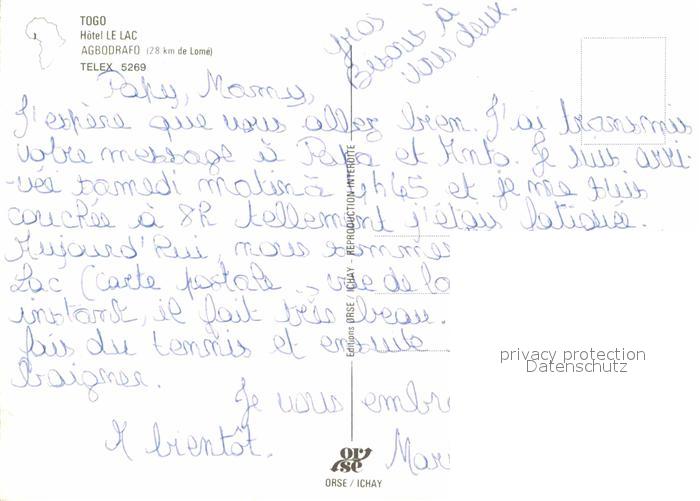 TOGO
Hôtel LE LAC
AGBODRAFO (28 km de Lomé)
TELEX 5269
Gros
Bisous à
vous deux.
Papy, Mamy,
J'espère que vous allez bien. J'ai transmis
votre message à Papa et . Je suis arri-
-vée samedi matin à 4h45 et je me suis
couchée à 8h tellement j'étais fatiguée.
Aujourd'hui, nous sommes
Lac (carte postale vue de
instant, il fait très beau.
fais du tennis et ensuite
baigner.
Je vous
A bientôt.
Editions ORSE / ICHAY - REPRODUCTION INTERDITE
orse
ORSE / ICHAY
privacy protection
Datenschutz